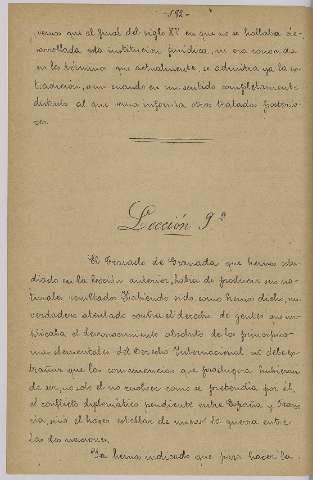 -582-
vemos que al final del siglo XV en que no se hallaba de-
sarrollada esta institucion juridica, ni era conocida
en los términos que actualmente, se admitia ya la ex-
tradicion, aun cuando en un sentido completamente
distinto al que
otros tratados posterio-
res.
Lección 9ª
El Tratado de Granada que hemos estu-
diado en la lección anterior, habia de producir sus na-
turales resultados. Habiendo sido como hemos dicho, un
verdadero atentado contra el derecho de gentes que sig-
nificaba el desconocimiento absoluto de los principios
mas elementales del Derecho Internacional no debe ex-
trañar que las consecuencias que produjera hubieran
de ser, no solo el no resolver como se pretendia por él,
el conflicto diplomático pendiente entre España y Fran-
cia, sino el hacer estallar de nuevo la guerra entre
las dos naciones.
Ya hemos indicado que para hacer la